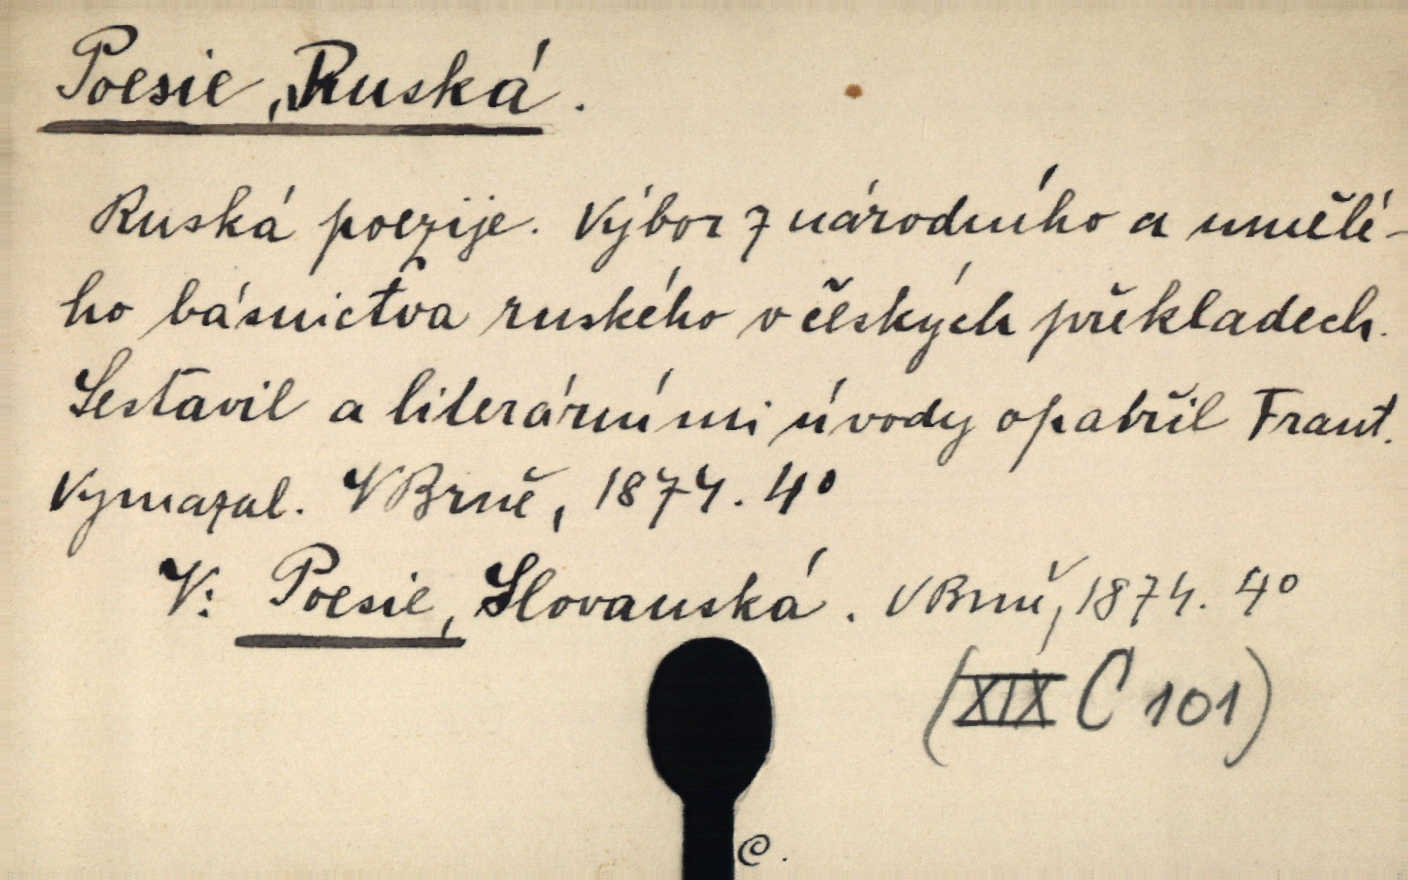 Poesie, Ruská.
Ruská poezije. Výbor z národního a umělé-
ho básnictva ruského v českých překladech.
Sestavil a literárními úvody opatřil Frant.
Vymazal. V Brně, 1874. 4°
V: Poesie, Slovanská. V Brně, 1874. 4°
(XIX C 101)
C.